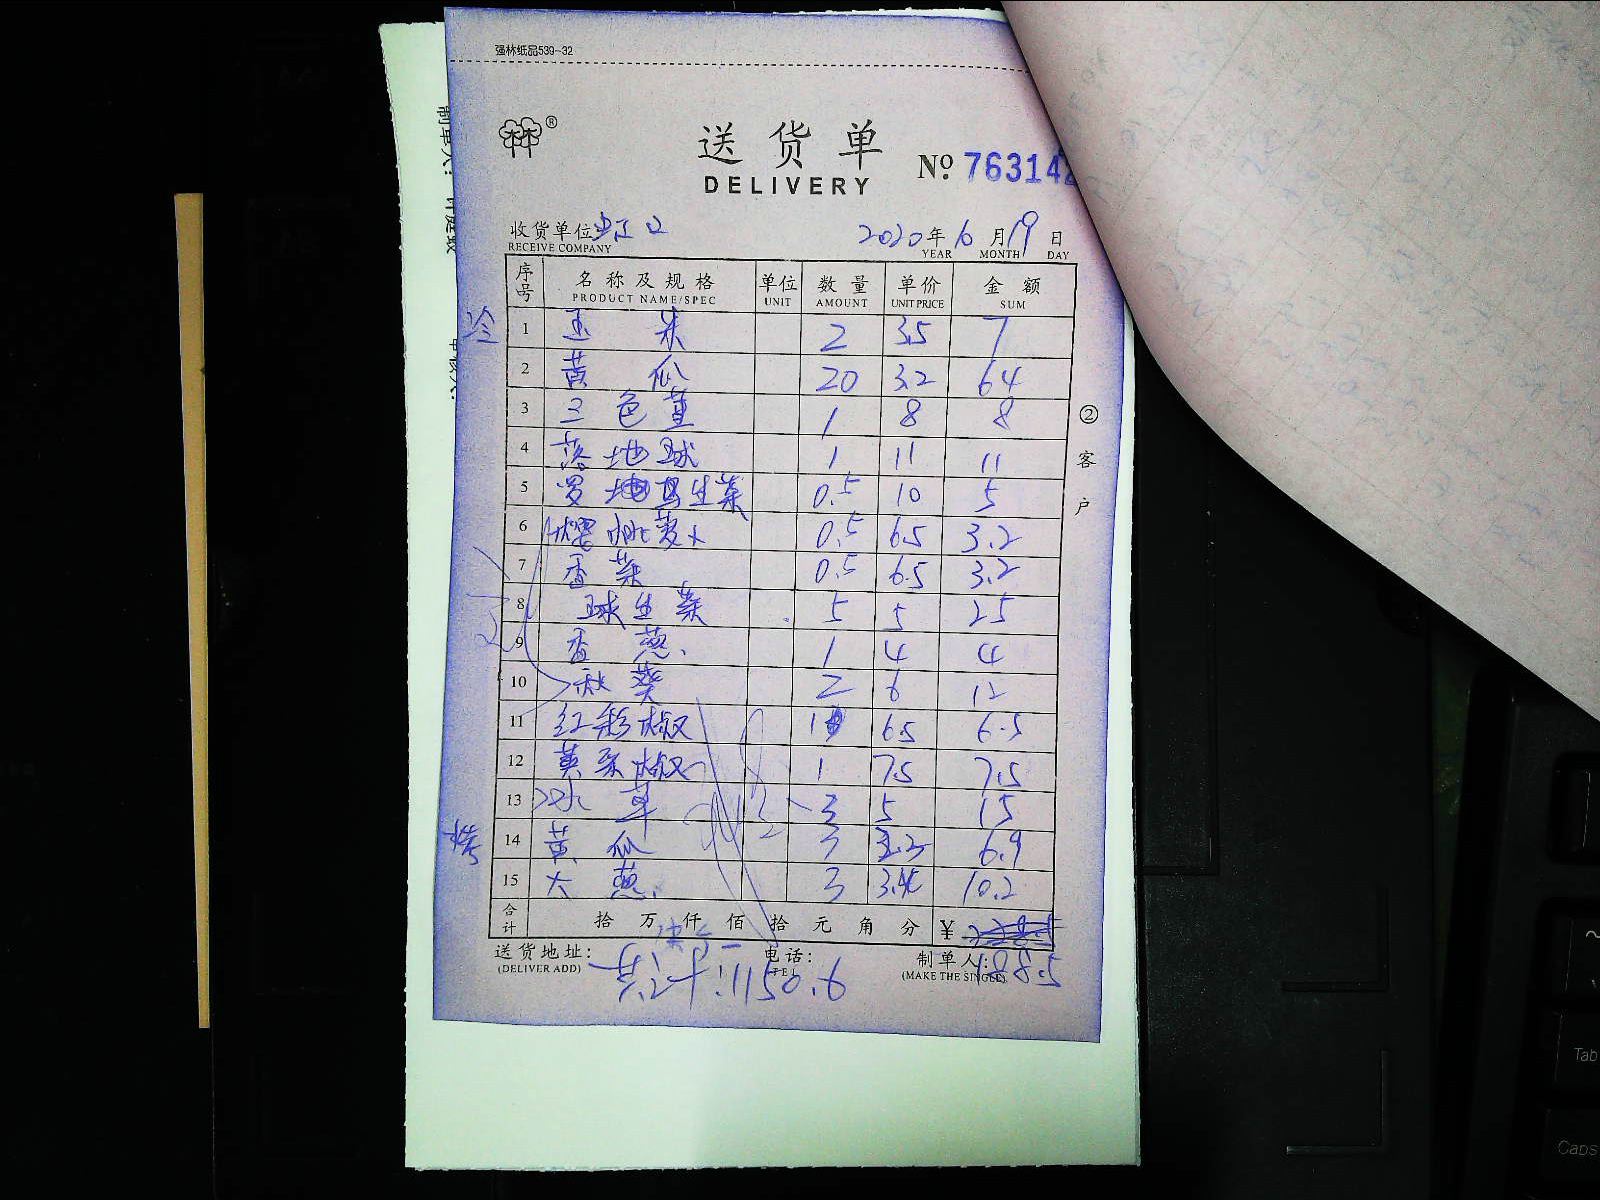 强林纸品539-32
林®
送货单
DELIVERY
No. 76314
收货单位 虹口
RECEIVE COMPANY
2020年6月19日
YEAR MONTH DAY
序号 名称及规格 单位 数量 单价 金额
PRODUCT NAME/SPEC UNIT AMOUNT UNIT PRICE SUM
冷
1 玉米 2 3.5 7
2 黄瓜 20 3.2 64
3 三色堇 1 8 8
4 落地球 1 11 11
5 罗地马生菜 0.5 10 5
6 樱桃萝卜 0.5 6.5 3.2
7 香菜 0.5 6.5 3.2
8 球生菜 5 5 25
9 香葱 1 4 4
10 秋葵 2 6 12
11 红彩椒 1 6.5 6.5
12 黄彩椒 1 7.5 7.5
13 冰草 3 5 15
烤
14 黄瓜 3 2.3 6.9
15 大葱 3 3.4 10.2
合计 拾万仟佰拾元角分 ¥
188.5
送货地址:
(DELIVER ADD)
电话:
(TEL)
制单人:
(MAKE THE SINGLE)
共计:1150.6
②客户
制单人:
Tab
Caps